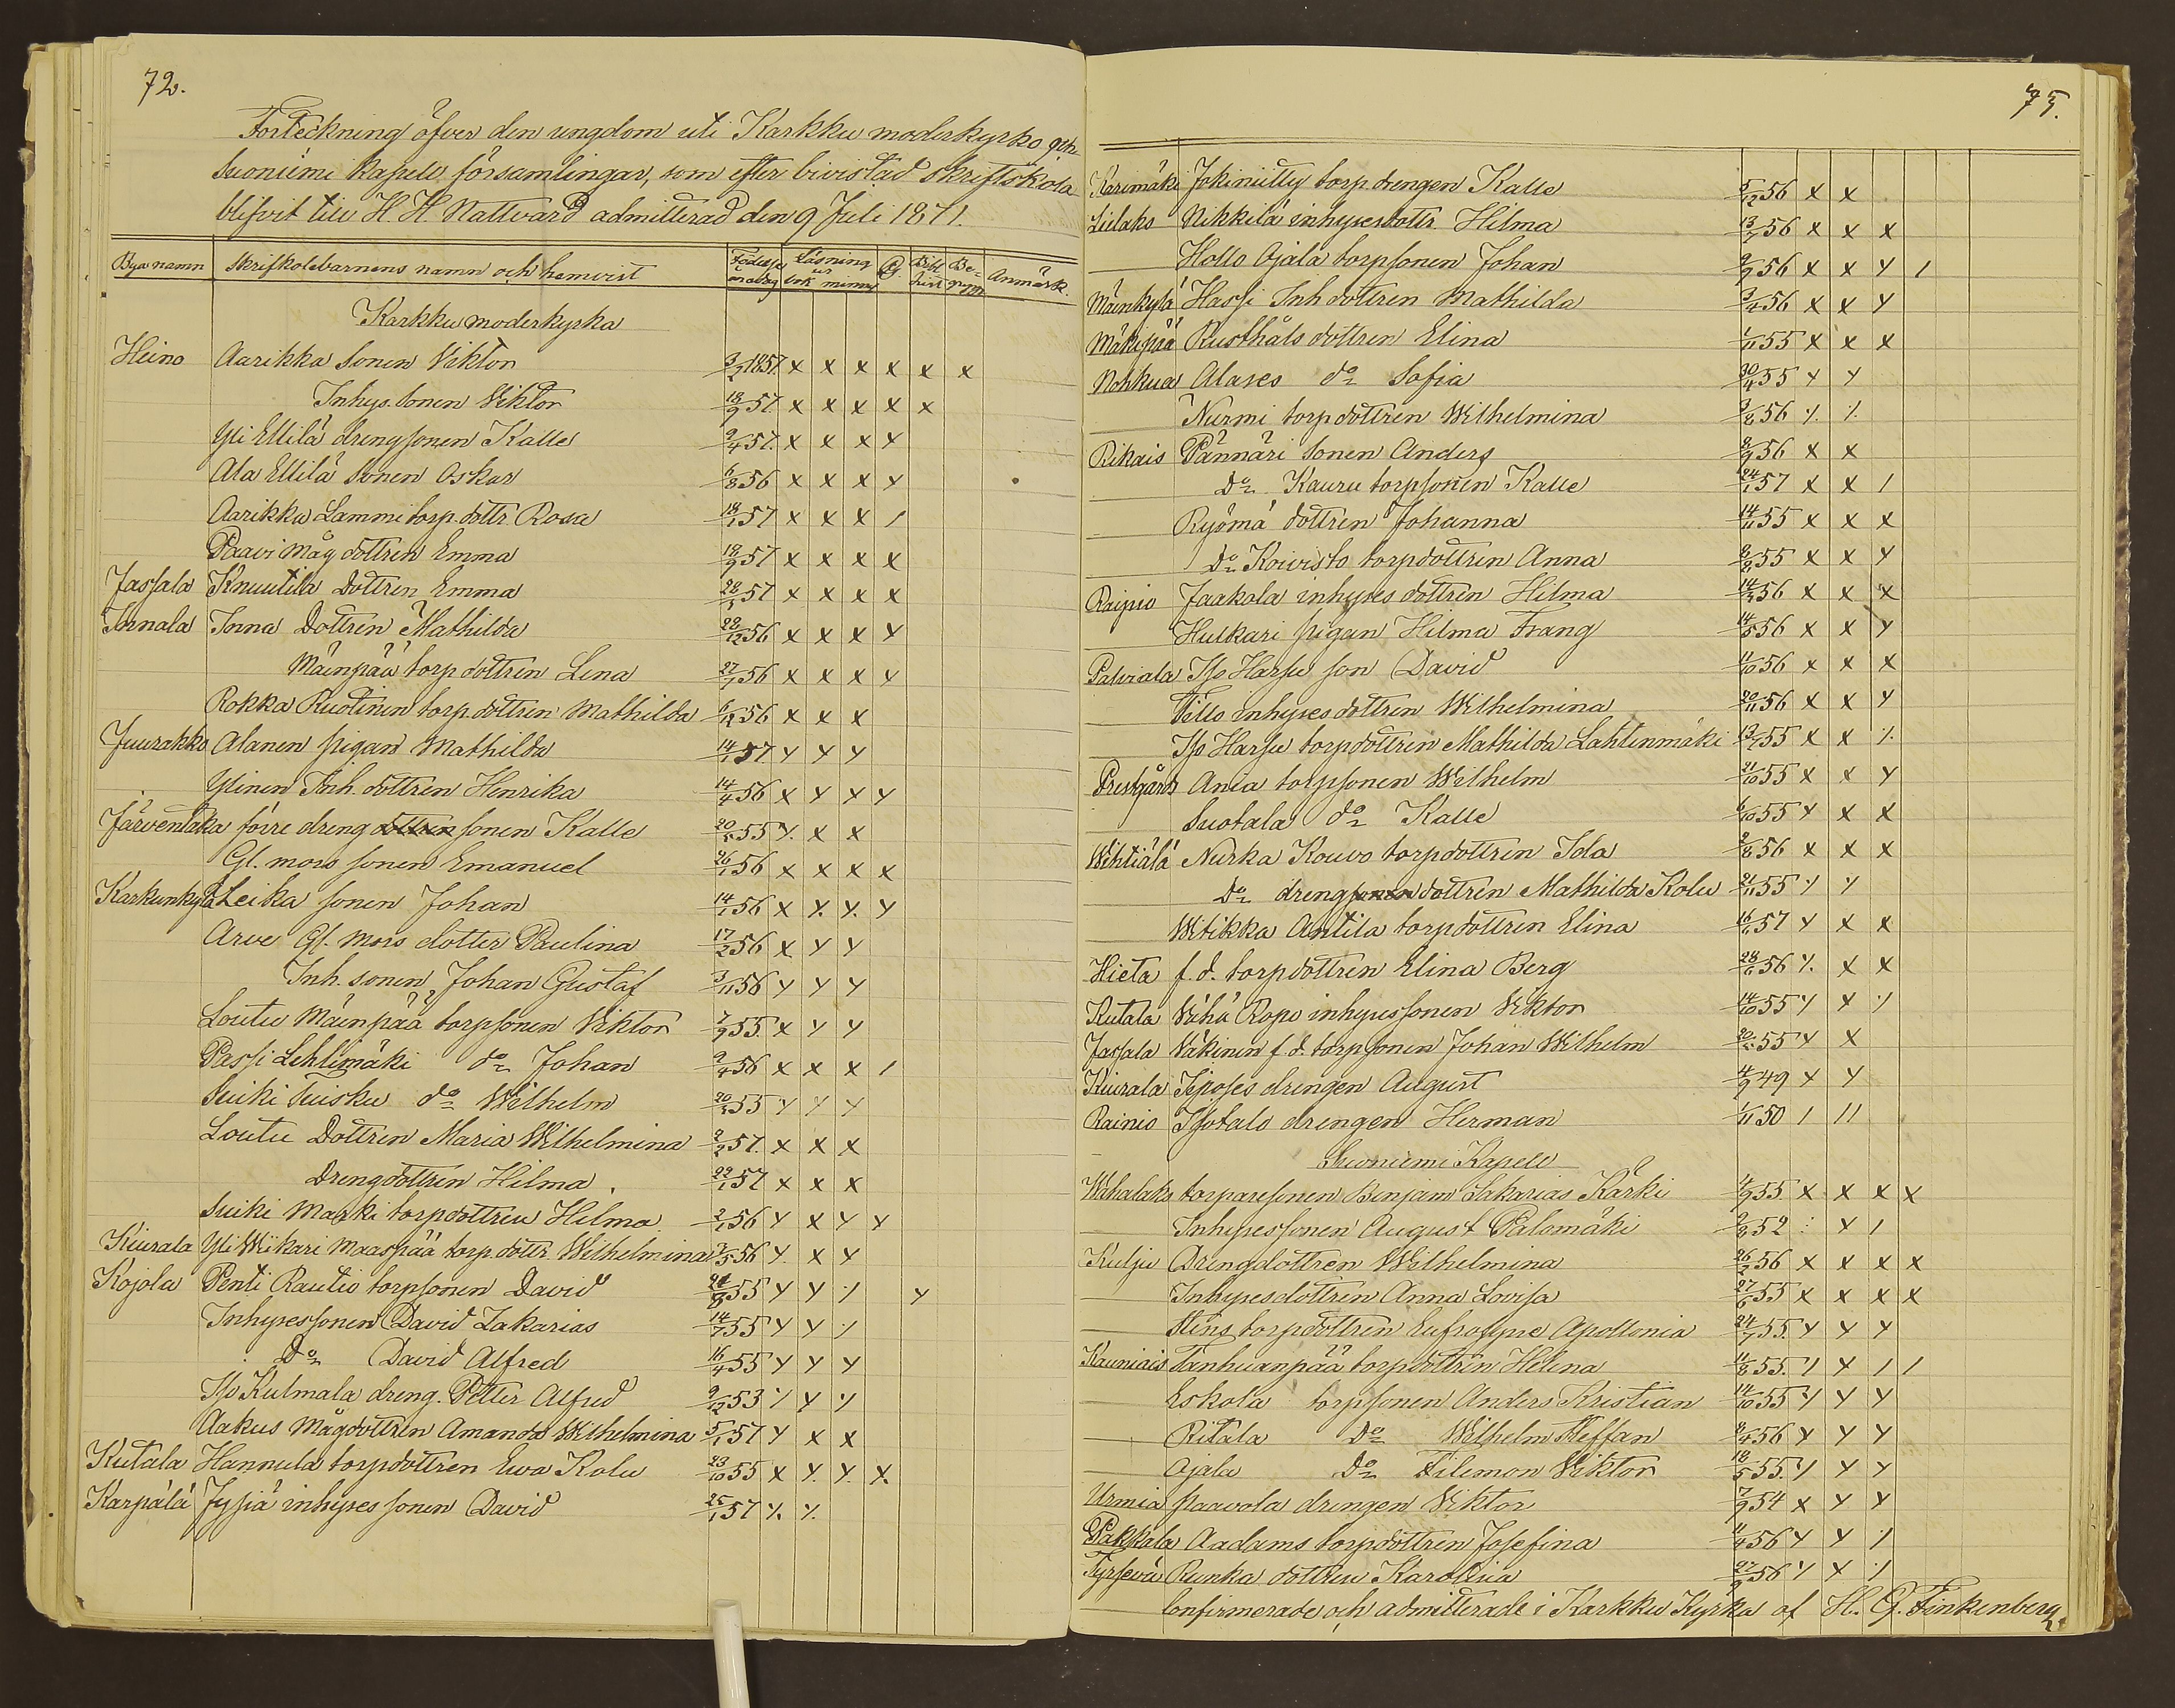 72.
Förteckning öfver den ungdom uti Karkku moderkyrko och
Suoniemi Kapell församlingar, som efter bivistad skriftskola
blifvit till H H Nattvard admitterad den 9 Juli 1871.
Byanamn Skrifskolebarnens namn och hemvist Födelse år o dag Läsning ur bok minne Bibl. hist Be- grepp Anmärk.
Karkku moderkyrka
Heino Aarikka Sonen Viktor 3/2 1857. x x x x x x
Inhys. Sonen Viktor 18/9 57. x x x x x
Yli Ellilä drengsonen Kalle 9/4 57. x x x x
Ala Ellilä Sonen Oskar 6/8 56 x x x x
Aarikka Lammi torp. dottr. Rosa 18/1 57 x x x /
Paavi Måg dottren Emma 18/9 57 x x x x
Jassala Knuutila Dottren Emma 22/1 57 x x x x
Innala Inna Dottren Mathilda 28/12 56 x x x x
Mäinpää torp dottren Lena 27/7 56 x x x x
Rokka Ruotinen torp. dottren Mathilda 6/12 56 x x x
Juurakko Alanen pigan Mathilda 14/1 57 x x x
Ylinen Inh. dottren Henrika 14/4 56 x x x x
Järventaka förre dreng dottren sonen Kalle 20/5 55 x x x
Gl. mors sonen Emanuel 26/1 56 x x x x
Karkunkylä Leika sonen Johan 14/1 56 x x x x
Arve Gl. Mors dotter Paulina 17/2 56 x x x
Inh. sonen Johan Gustaf 3/11 56 x x x
Loutu Mäinpää torpsonen Viktor 7/9 55. x x x
Passi Lehtimäki do Johan 9/4 56 x x x /
Suiki Tuisku do Wilhelm 20/5 55 x x x
Loutu Dottren Maria Wilhelmina 2/2 57. x x x
Drengdottren Hilma 22/1 57 x x x
Suiki Marki torpdottren Hilma 2/1 56 x x x x
Kiurala Yli Wikari Maaspää torp. dottr. Wilhelmina 7/5 56 x x x
Kojola Penti Rautio torpsonen David 21/8 55 x x x x
Inhysessonen David Zakarias 14/7 55 x x x
Do David Alfred 16/4 55 x x x
Iso Kulmala dreng. Petter Alfred 9/12 53 x x x
Aakus Mågdottren Amanda Wilhelmina 5/1 57 x x x
Kutala Hannula torpdottren Ewa Kolu 23/10 55 x x x x
Karpälä Jysiä inhyses sonen David 25/1 57 x x
75.
Karimäki Jokiniitty torp. drengen Kalle 5/12 56 x x
Lielaks Nikkilä inhysesdottr. Hilma 13/7 56 x x x
Hollo Ojala torpsonen Johan 9/9 56 x x x /
Mäinkylä Hassi Inh dottren Mathilda 3/4 56 x x x
Mäkipää Rusthåls dottren Elina 1/11 55 x x x
Nohkua Alases do Sofia 30/4 55 x x
Nurmi torpdottren Wilhelmina 3/6 56 x x
Rikais Pännäri Sonen Anders 8/9 56 x x
Do Kauru torpsonen Kalle 24/1 57 x x /
Ryömä dottren Johanna 14/11 55 x x x
Do Koivisto torpdottren Anna 8/2 55 x x x
Raipio Jaakola inhyses dottren Hilma 14/7 56 x x x
Hulkari pigan Hilma Frang 14/5 56 x x x
Palviala Iso Harsu son David 11/10 56 x x x
Tello inhyses dottren Wilhelmina 20/11 56 x x x
Iso Harsu torpdottren Mathilda Lahtinmäki 13/7 55 x x x
Prestgård Ania torpsonen Wilhelm 21/10 55 x x x
Suotala do Kalle 6/10 55 x x x
Wihtiälä Nurka Kouvo torpdottren Ida 9/8 56 x x x
Do drengsonen dottren Mathilda Kolu 21/11 55 x x
Witikka Antila torpdottren Elina 16/6 57 x x x
Hieta f. d. torpdottren Elina Berg 28/6 56 x x x
Kutala Vähä Ropo inhysessonen Viktor 14/10 55 x x x
Jassala Näkinen f. d. torpsonen Johan Wilhelm 20/5 55 x x
Kiurala Seposes drengen August 4/9 49 x x
Rainio Isotalo drengen Herman 1/11 50 / //
Suoniemi Kapell
Wihalaks torparesonen Benjam Sakarias Kärki 4/9 55 x x x x
Inhysessonen August Palomäki 2/2 52 : x /
Kulju Drengdottren Wilhelmina 26/2 56 x x x x
Inhysesdottren Anna Lovisa 27/6 55 x x x x
Stens torpdottren Eufrosyne Apollonia 24/7 55. x x x
Kauniais Tanhuanpää torpdottren Helena 11/8 55. x x / /
Eskola torpsonen Anders Kristian 14/10 55 x x x
Ritala Do Wilhelm Steffan 8/4 56 x x x
Ojala Do Filemon Viktor 18/5 55. x x x
Urmia Paavola drengen Viktor 7/9 54 x x x
Pakkala Aadams torpdottren Josefina 4/4 56 x x x
Tyrsevä Runka dottren Karolina 22/9 56 x x x
Confirmerade och admitterade i Karkku Kyrka af H. G. Finkenberg